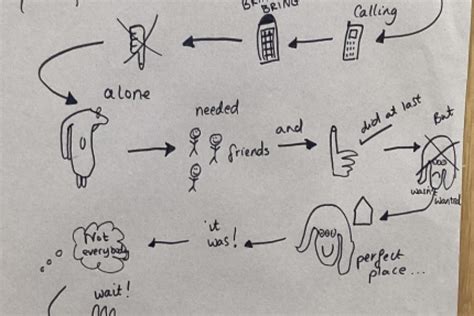 BRING
Calling
alone
needed
friends
and
did at last
But
wasn't
wanted
perfect
place...
it
was!
Not
everybody
wait!